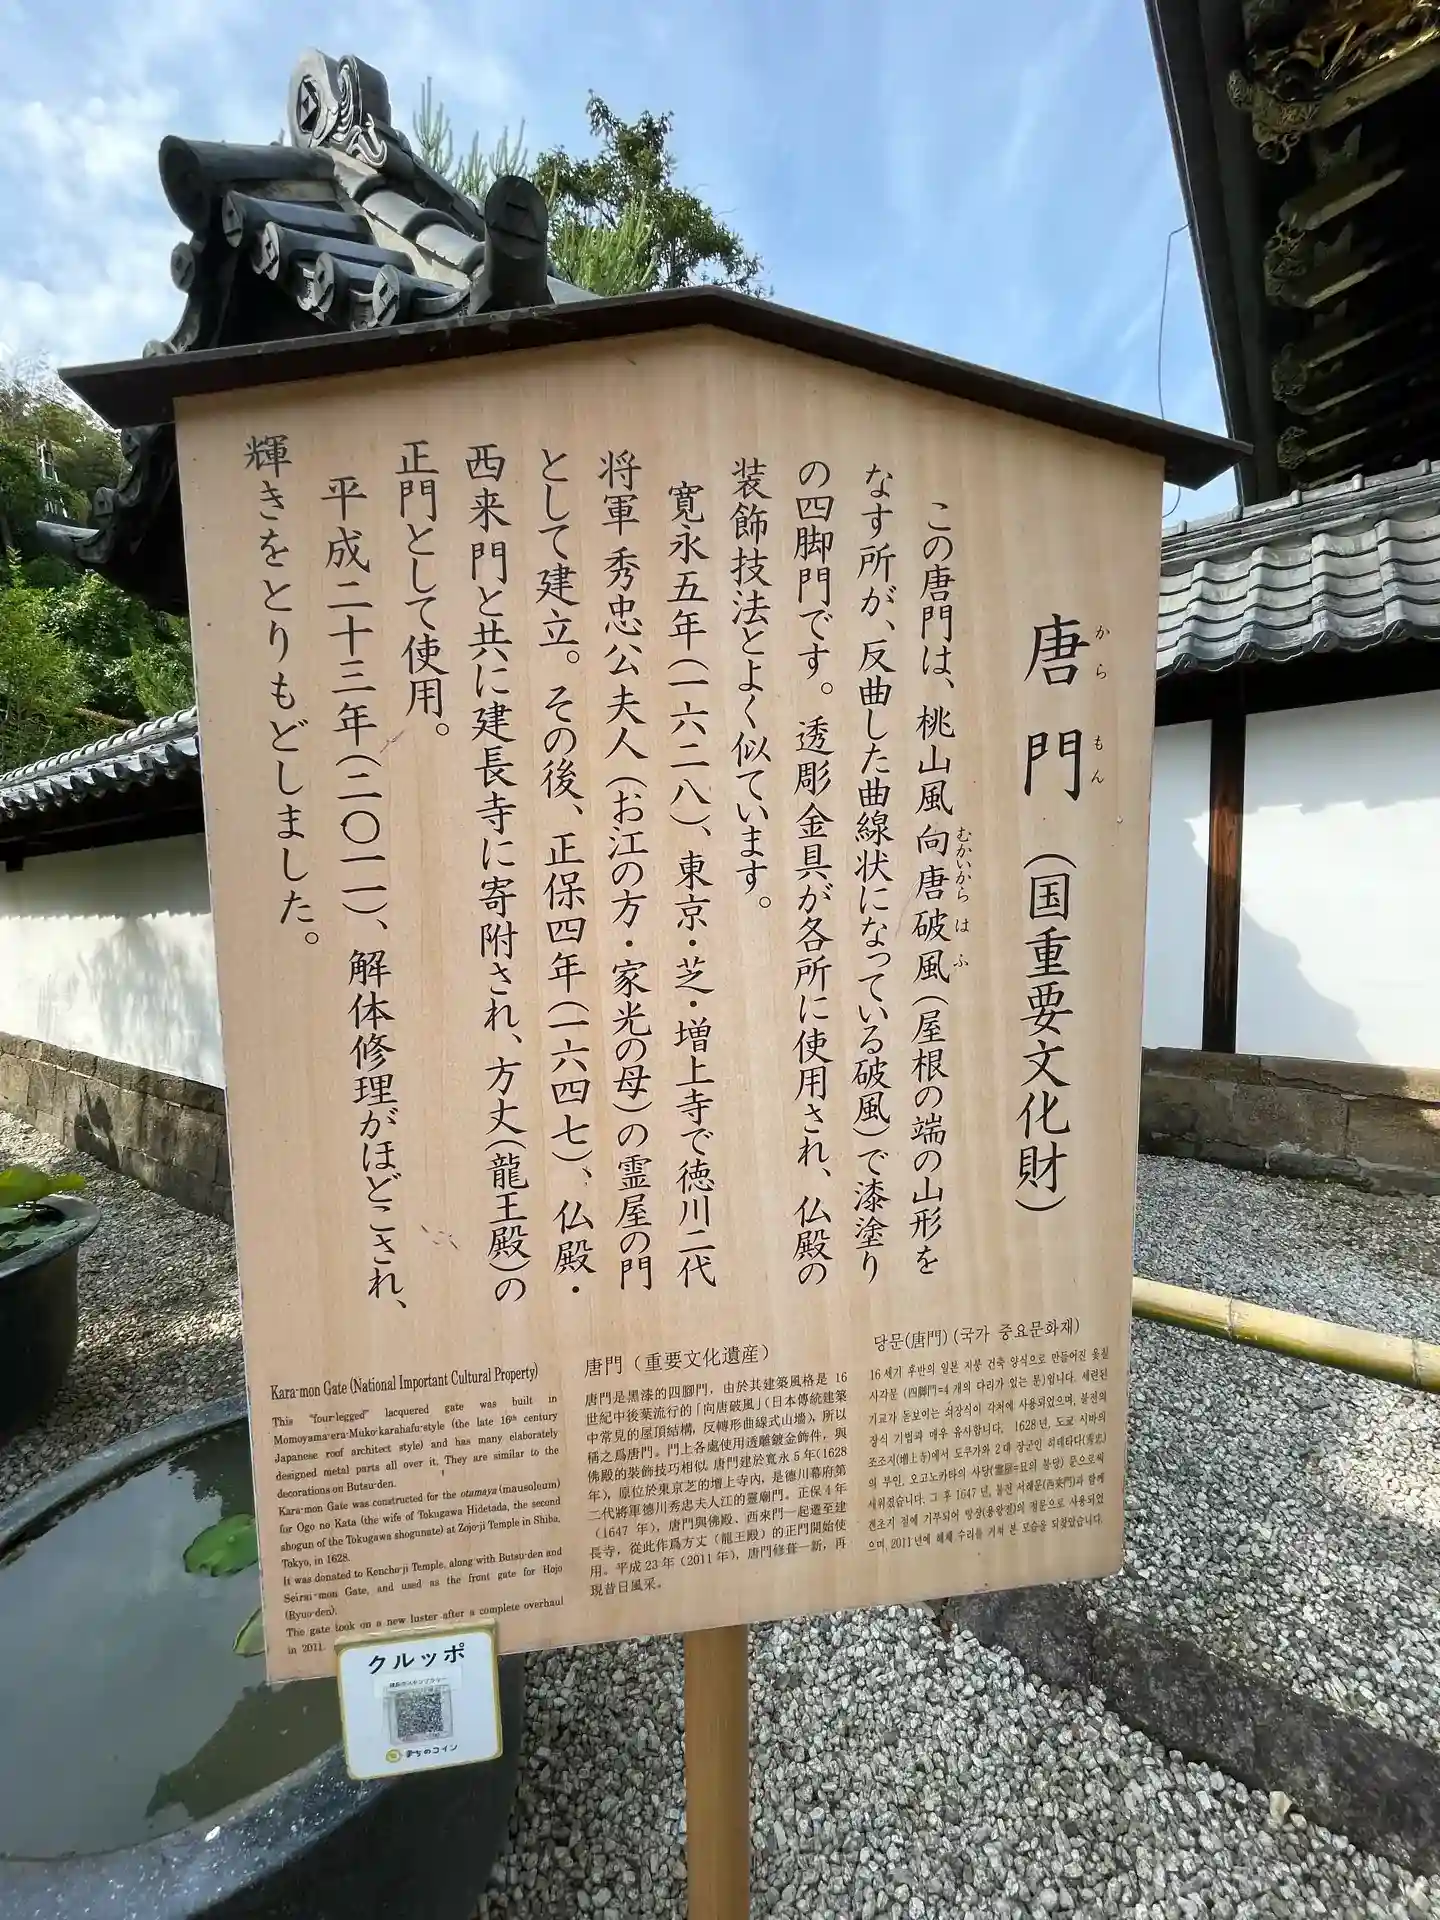 唐門（国重要文化財）
からもん
この唐門は、桃山風向唐破風（屋根の端の山形を
むかいからはふ
なす所が、反曲した曲線状になっている破風）で漆塗り
の四脚門です。透彫金具が各所に使用され、仏殿の
装飾技法とよく似ています。
寛永五年（一六二八）、東京・芝・増上寺で徳川二代
将軍秀忠公夫人（お江の方・家光の母）の霊屋の門
として建立。その後、正保四年（一六四七）、仏殿・
西来門と共に建長寺に寄附され、方丈（龍王殿）の
正門として使用。
平成二十三年（二〇一一）、解体修理がほどこされ、
輝きをとりもどしました。
Kara-mon Gate (National Important Cultural Property)
This "four-legged" lacquered gate was built in
Momoyama-era-Muko-karahafu-style (the late 16th century
Japanese roof architect style) and has many elaborately
designed metal parts all over it. They are similar to the
decorations on Butsu-den.
Kara-mon Gate was constructed for the otamaya (mausoleum)
for Ogo no Kata (the wife of Tokugawa Hidetada, the second
shogun of the Tokugawa shogunate) at Zojo-ji Temple in Shiba,
Tokyo, in 1628.
It was donated to Kencho-ji Temple, along with Butsu-den and
Seirai-mon Gate, and used as the front gate for Hojo
(Ryuo-den).
The gate took on a new luster after a complete overhaul
in 2011.
唐門（重要文化遺産）
唐門是黑漆的四腳門，由於其建築風格是 16
世紀中後葉流行的「向唐破風」（日本傳統建築
中常見的屋頂結構，反轉形曲線式山牆），所以
稱之爲唐門。門上各處使用透雕鍍金飾件，與
佛殿的裝飾技巧相似。唐門建於寬永 5 年（1628
年），原位於東京芝的增上寺內，是德川幕府第
二代將軍德川秀忠夫人江的靈廟門。正保 4 年
（1647 年），唐門與佛殿、西來門一起遷至建
長寺，從此作爲方丈（龍王殿）的正門開始使
用。平成 23 年（2011 年），唐門修葺一新，再
現昔日風采。
당문(唐門) (국가 중요문화재)
16 세기 후반의 일본 지붕 건축 양식으로 만들어진 옻칠
사각문 (四脚門=4 개의 다리가 있는 문)입니다. 세련된
기교가 돋보이는 쇠장식이 각처에 사용되었으며, 불전의
장식 기법과 매우 유사합니다. 1628 년, 도쿄 시바의
조조지(增上寺)에서 도쿠가와 2 대 장군인 히데타다(秀忠)
의 부인, 오고노카타의 사당(靈屋=묘의 봉당) 문으로써
세워졌습니다. 그 후 1647 년, 불전 서래문(西來門)과 함께
겐조지 절에 기부되어 방장(용왕전)의 정문으로 사용되었
으며, 2011 년에 해체 수리를 거쳐 본 모습을 되찾았습니다.
クルッポ
まちのコイン